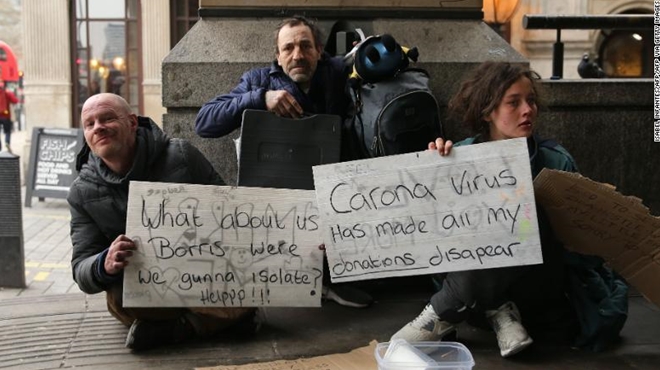 What about us
Borris were
we gunna isolate?
Helppp!!!
Carona Virus
Has made all my
donations disapear
FISH &
CHIPS
ISABEL INFANTES/AFP/AFP VIA GETTY IMAGES